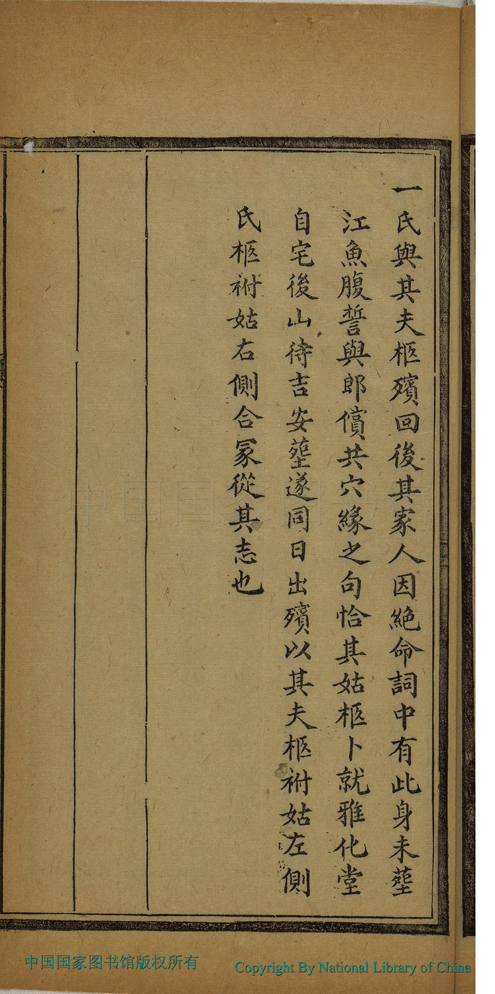 一氏與其夫柩殯回後其家人因絕命詞中有此身未塟
江魚腹誓與郎償共穴緣之句恰其姑柩卜就雅化堂
自宅後山待吉安塟遂同日出殯以其夫柩祔姑左側
氏柩祔姑右側合冢從其志也
中国国家图书馆版权所有
Copyright By National Library of China